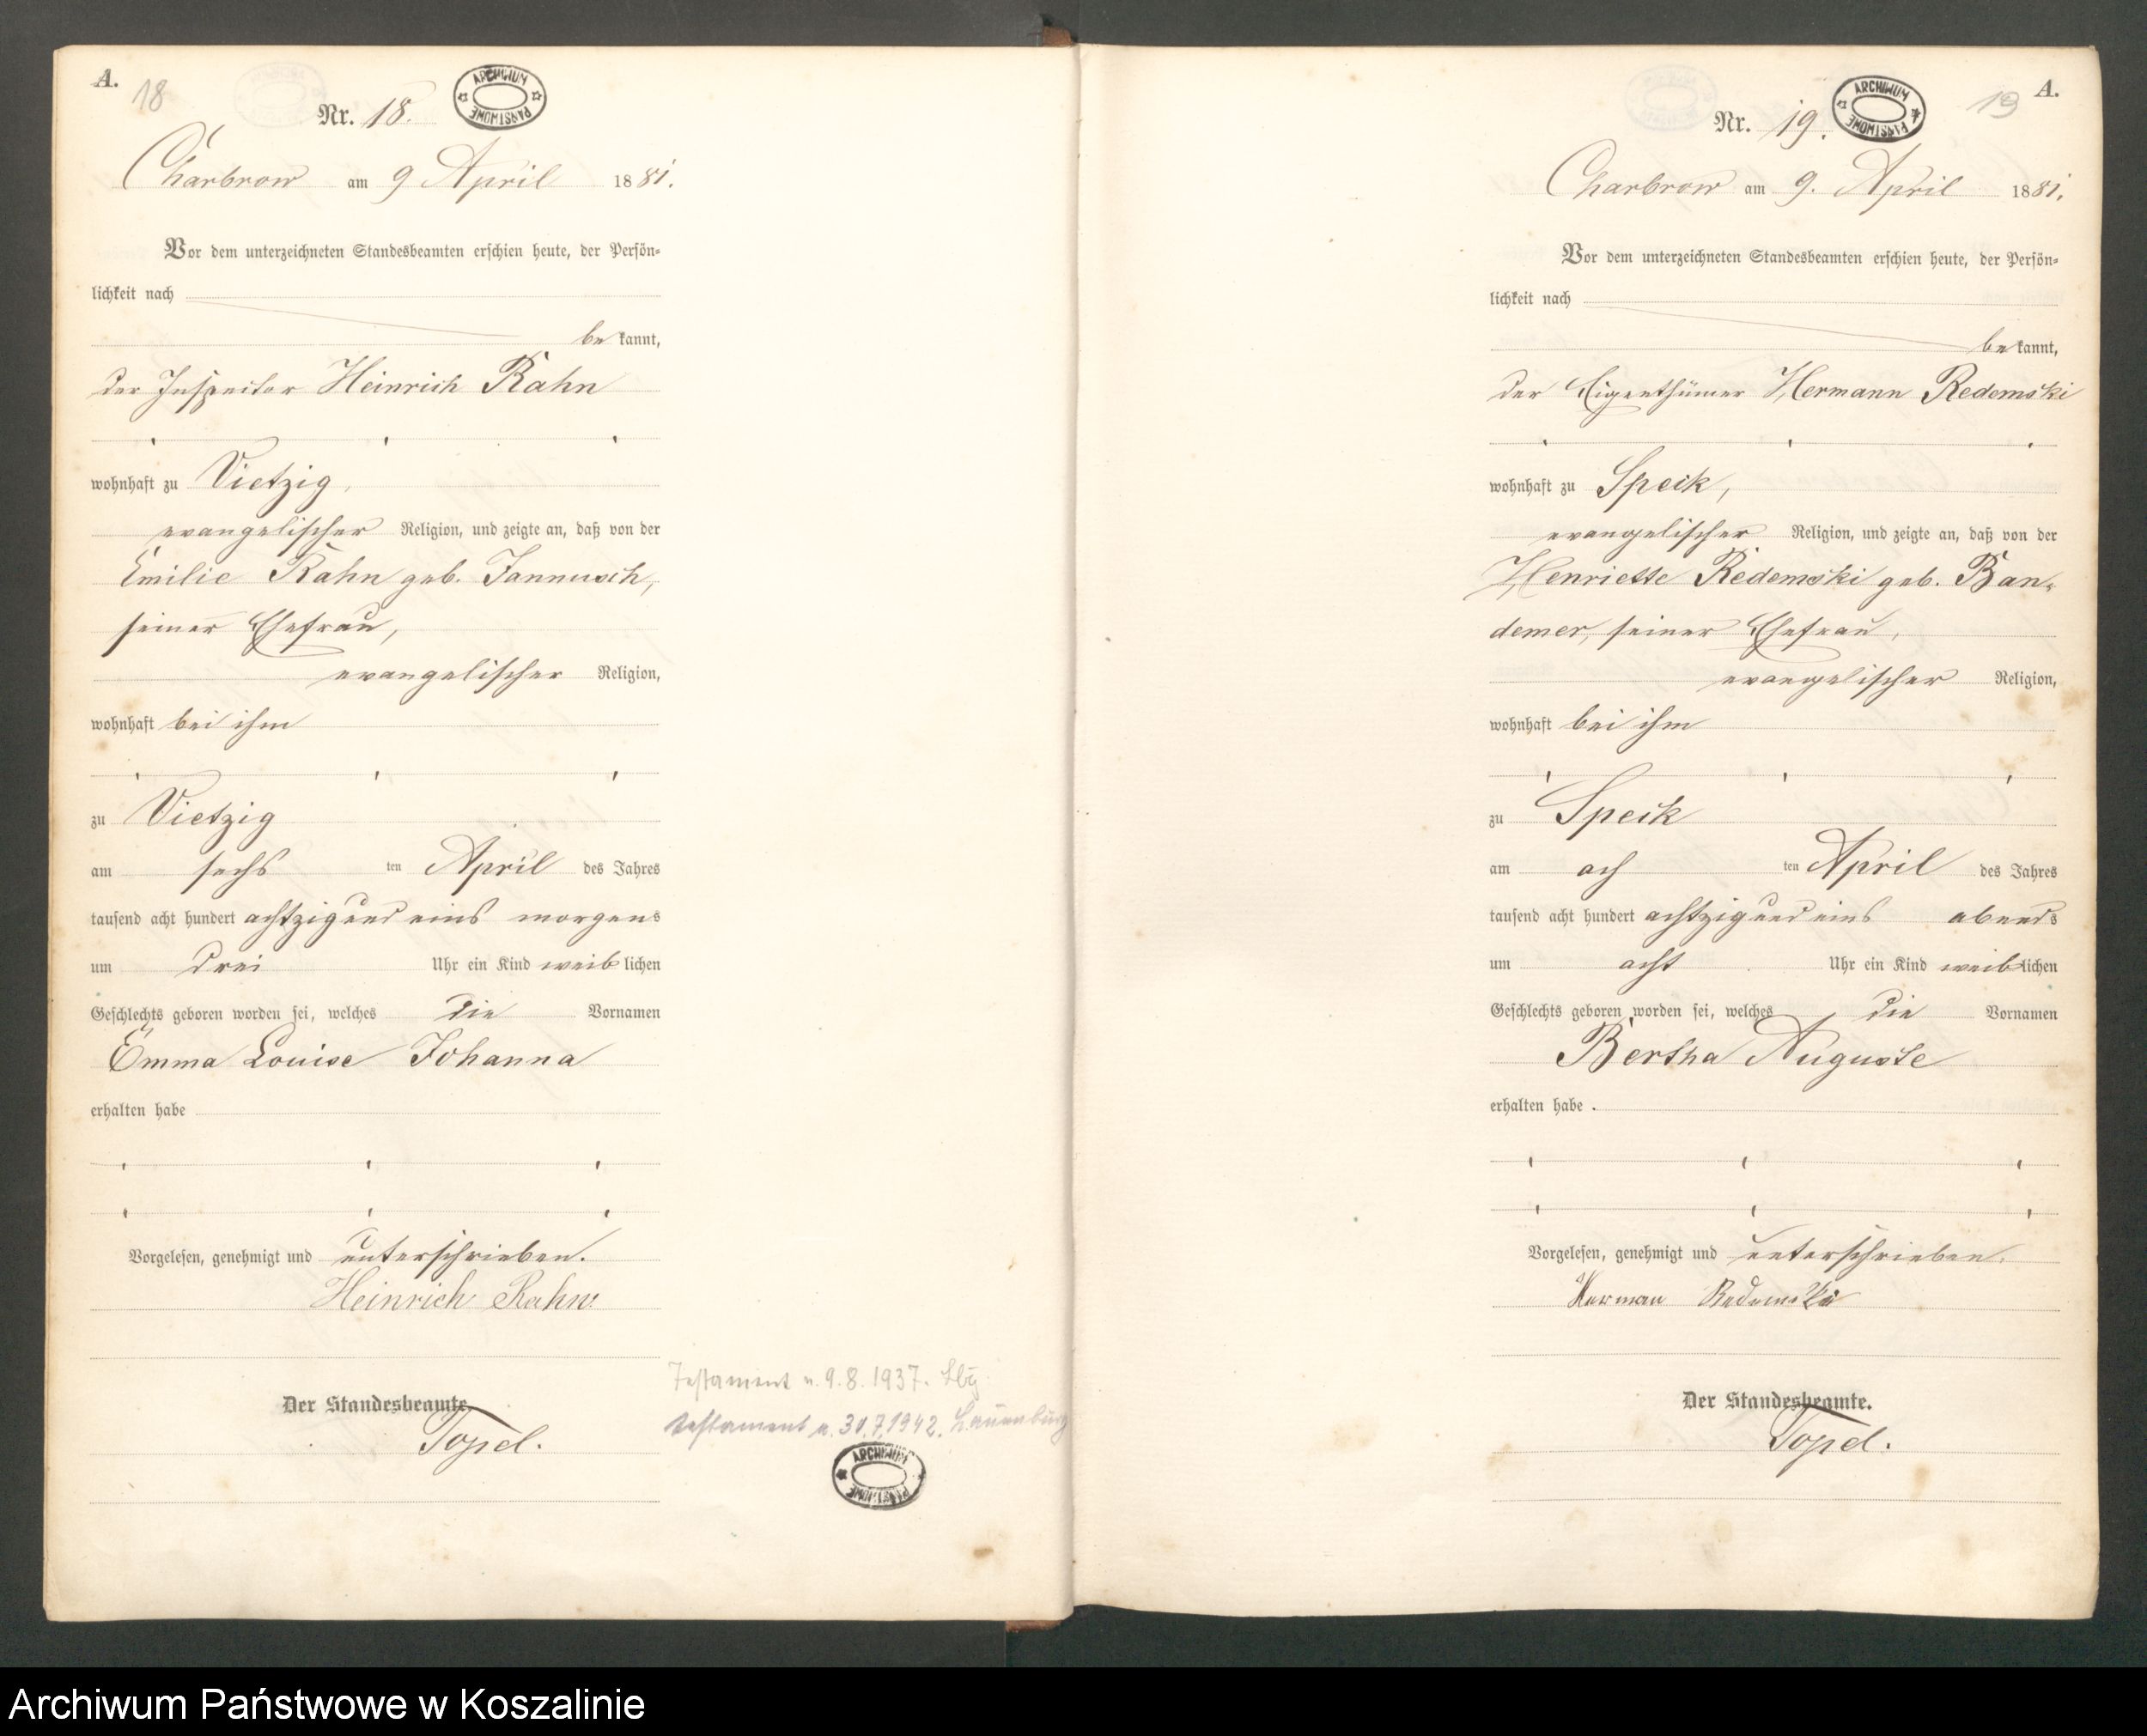 A.
18
Nr. 18.
ARCHIWUM PAŃSTWOWE
Charbrow am 9 April 1881.
Vor dem unterzeichneten Standesbeamten erschien heute, der Persön-
lichkeit nach
bekannt,
der Inspector Heinrich Rahn
wohnhaft zu Vietzig,
evangelischer Religion, und zeigte an, daß von der
Emilie Rahn geb. Jannusch,
seiner Ehefrau,
evangelischer Religion,
wohnhaft bei ihm
zu Vietzig
am sechsten April des Jahres
tausend acht hundert achtzig und eins morgens
um drei Uhr ein Kind weiblichen
Geschlechts geboren worden sei, welches die Vornamen
Emma Louise Johanna
erhalten habe
Vorgelesen, genehmigt und unterschrieben.
Heinrich Rahn
Der Standesbeamte.
Topel.
Testament v. 9.8.1937. Lbg
Testament v. 30.7.1942. Lauenburg
ARCHIWUM PAŃSTWOWE
A.
19
Nr. 19.
ARCHIWUM PAŃSTWOWE
Charbrow am 9. April 1881.
Vor dem unterzeichneten Standesbeamten erschien heute, der Persön-
lichkeit nach
bekannt,
der Eigenthümer Hermann Redemski
wohnhaft zu Speck,
evangelischer Religion, und zeigte an, daß von der
Henriette Redemski geb. Ban-
demer, seiner Ehefrau,
evangelischer Religion,
wohnhaft bei ihm
zu Speck
am achten April des Jahres
tausend acht hundert achtzig und eins abends
um acht Uhr ein Kind weiblichen
Geschlechts geboren worden sei, welches die Vornamen
Bertha Auguste
erhalten habe.
Vorgelesen, genehmigt und unterschrieben.
Herman Redemski
Der Standesbeamte.
Topel.
Archiwum Państwowe w Koszalinie